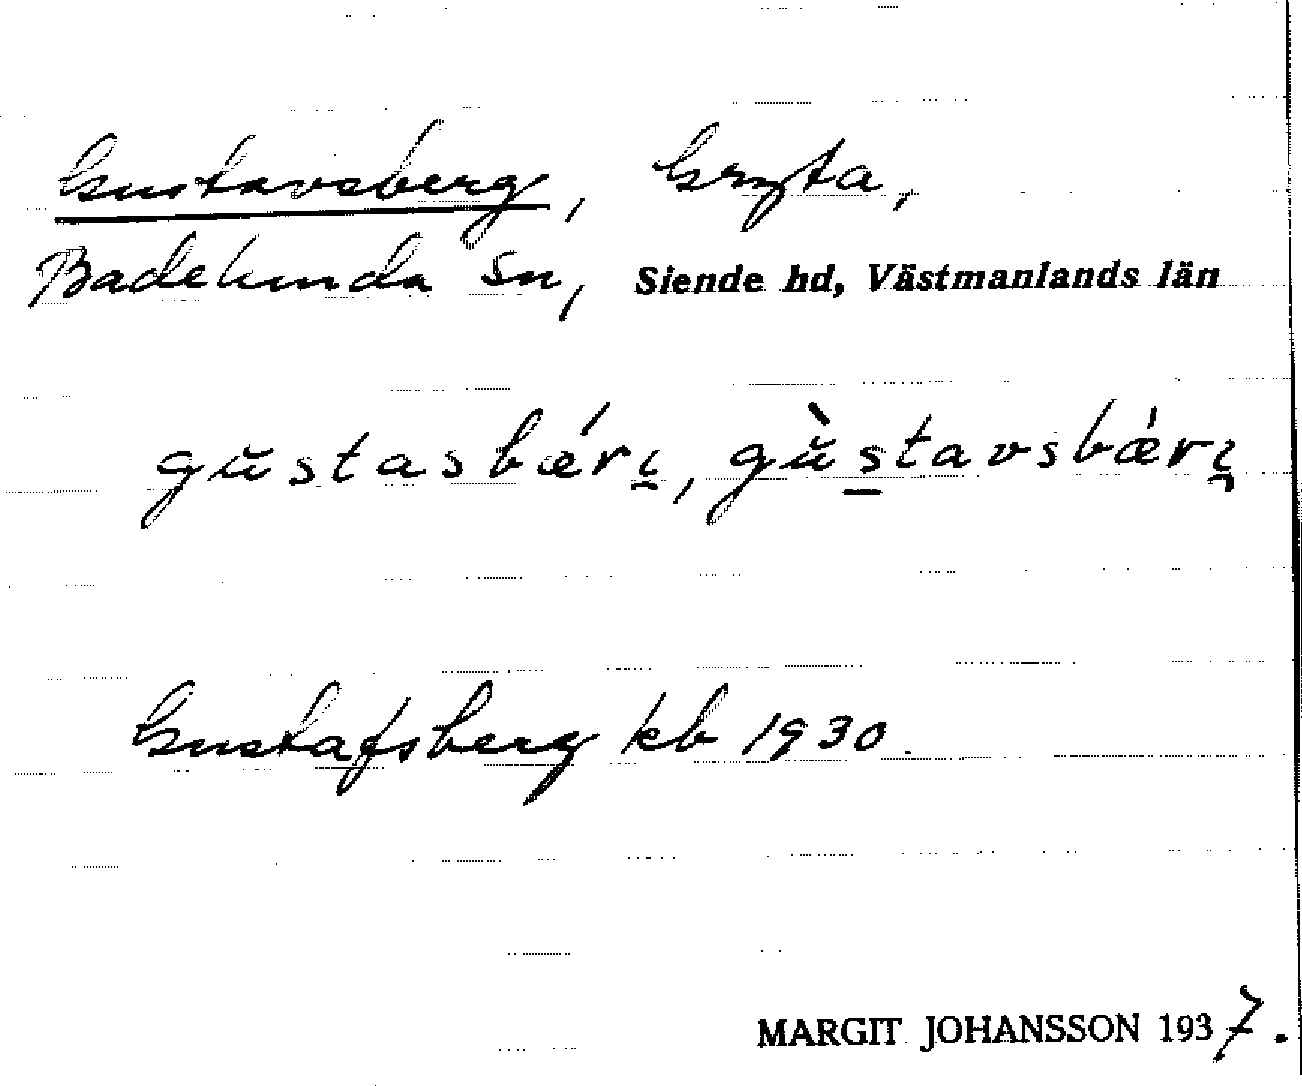 Gustavsberg, Gryta,
Badelunda sn, Siende hd, Västmanlands län
gŭstasbǽrı̯, gŭ̀s̲tavsbæ̍rı̯
Gustafsberg kb 1930.
MARGIT JOHANSSON 1937.